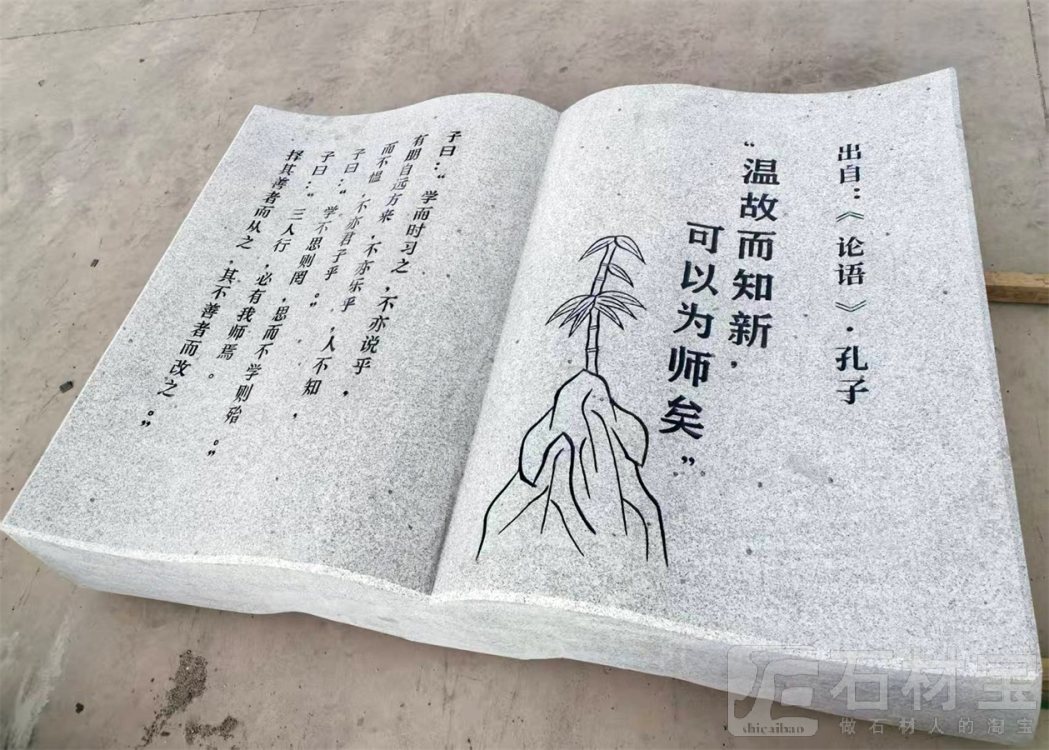 出自：《论语》·孔子
“温故而知新，
可以为师矣”
子曰：“学而时习之，不亦说乎，
有朋自远方来，不亦乐乎，人不知，
而不愠，不亦君子乎。”
子曰：“学不思则罔，思而不学则殆。”
子曰：“三人行，必有我师焉。
择其善者而从之，其不善者而改之。”
石材宝
shicaibao
做石材人的淘宝